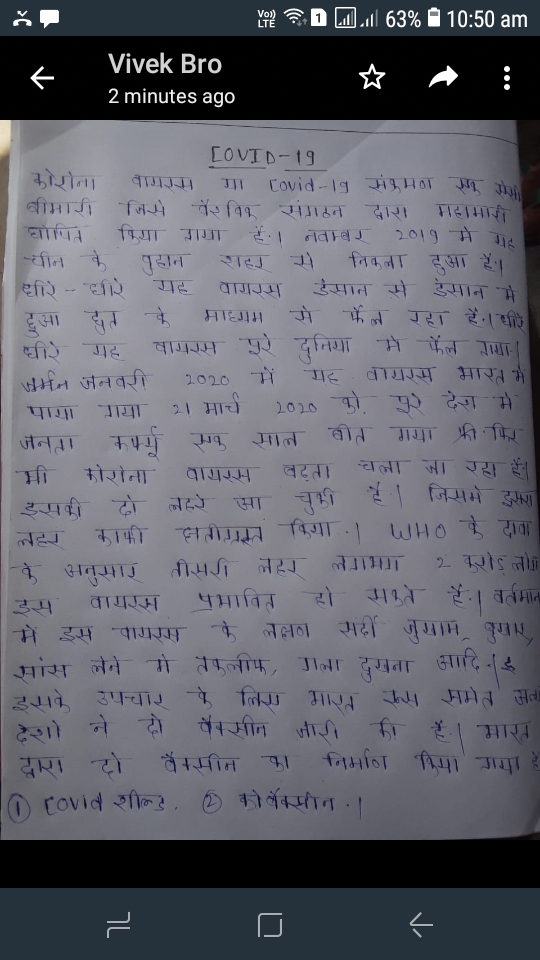 Vo)) LTE 1 63% 10:50 am
Vivek Bro
2 minutes ago
COVID-19
कोरोना वायरस या Covid-19 संक्रमण एक ऐसी
बीमारी जिसे वैश्विक संगठन द्वारा महामारी
घोषित किया गया है।  नवम्बर 2019 मे यह
चीन के वुहान शहर से निकला हुआ है।
धीरे - धीरे यह वायरस इंसान से इंसान मे
हुआ छुत के माध्यम से फैल रहा है। धीरे
धीरे यह वायरस पूरे दुनिया मे फैल गया।
जनवरी 2020 में यह वायरस भारत मे
पाया गया 21 मार्च 2020 को पूरे देश में
जनता कर्फ्यू एक साल बीत गया फिर
भी कोरोना वायरस बढ़ता चला जा रहा है।
इसकी दो लहरे आ चुकी है। जिसमे दूसरा
लहर काफी किया। WHO के दावा
के अनुसार तीसरी लहर लगभग 2 करोड़ लोग
इस वायरस प्रभावित हो सकते है। वर्तमान
में इस वायरस के लक्षण सर्दी जुखाम, बुखार,
सांस लेने मे तकलीफ, गला दुखना आदि।
इसके उपचार के लिए भारत रूस समेत
देशो ने दो वैक्सीन जारी की है। भारत
द्वारा दो वैक्सीन का निर्माण किया गया है
① Covid शील्ड. ② कोवैक्सीन.।